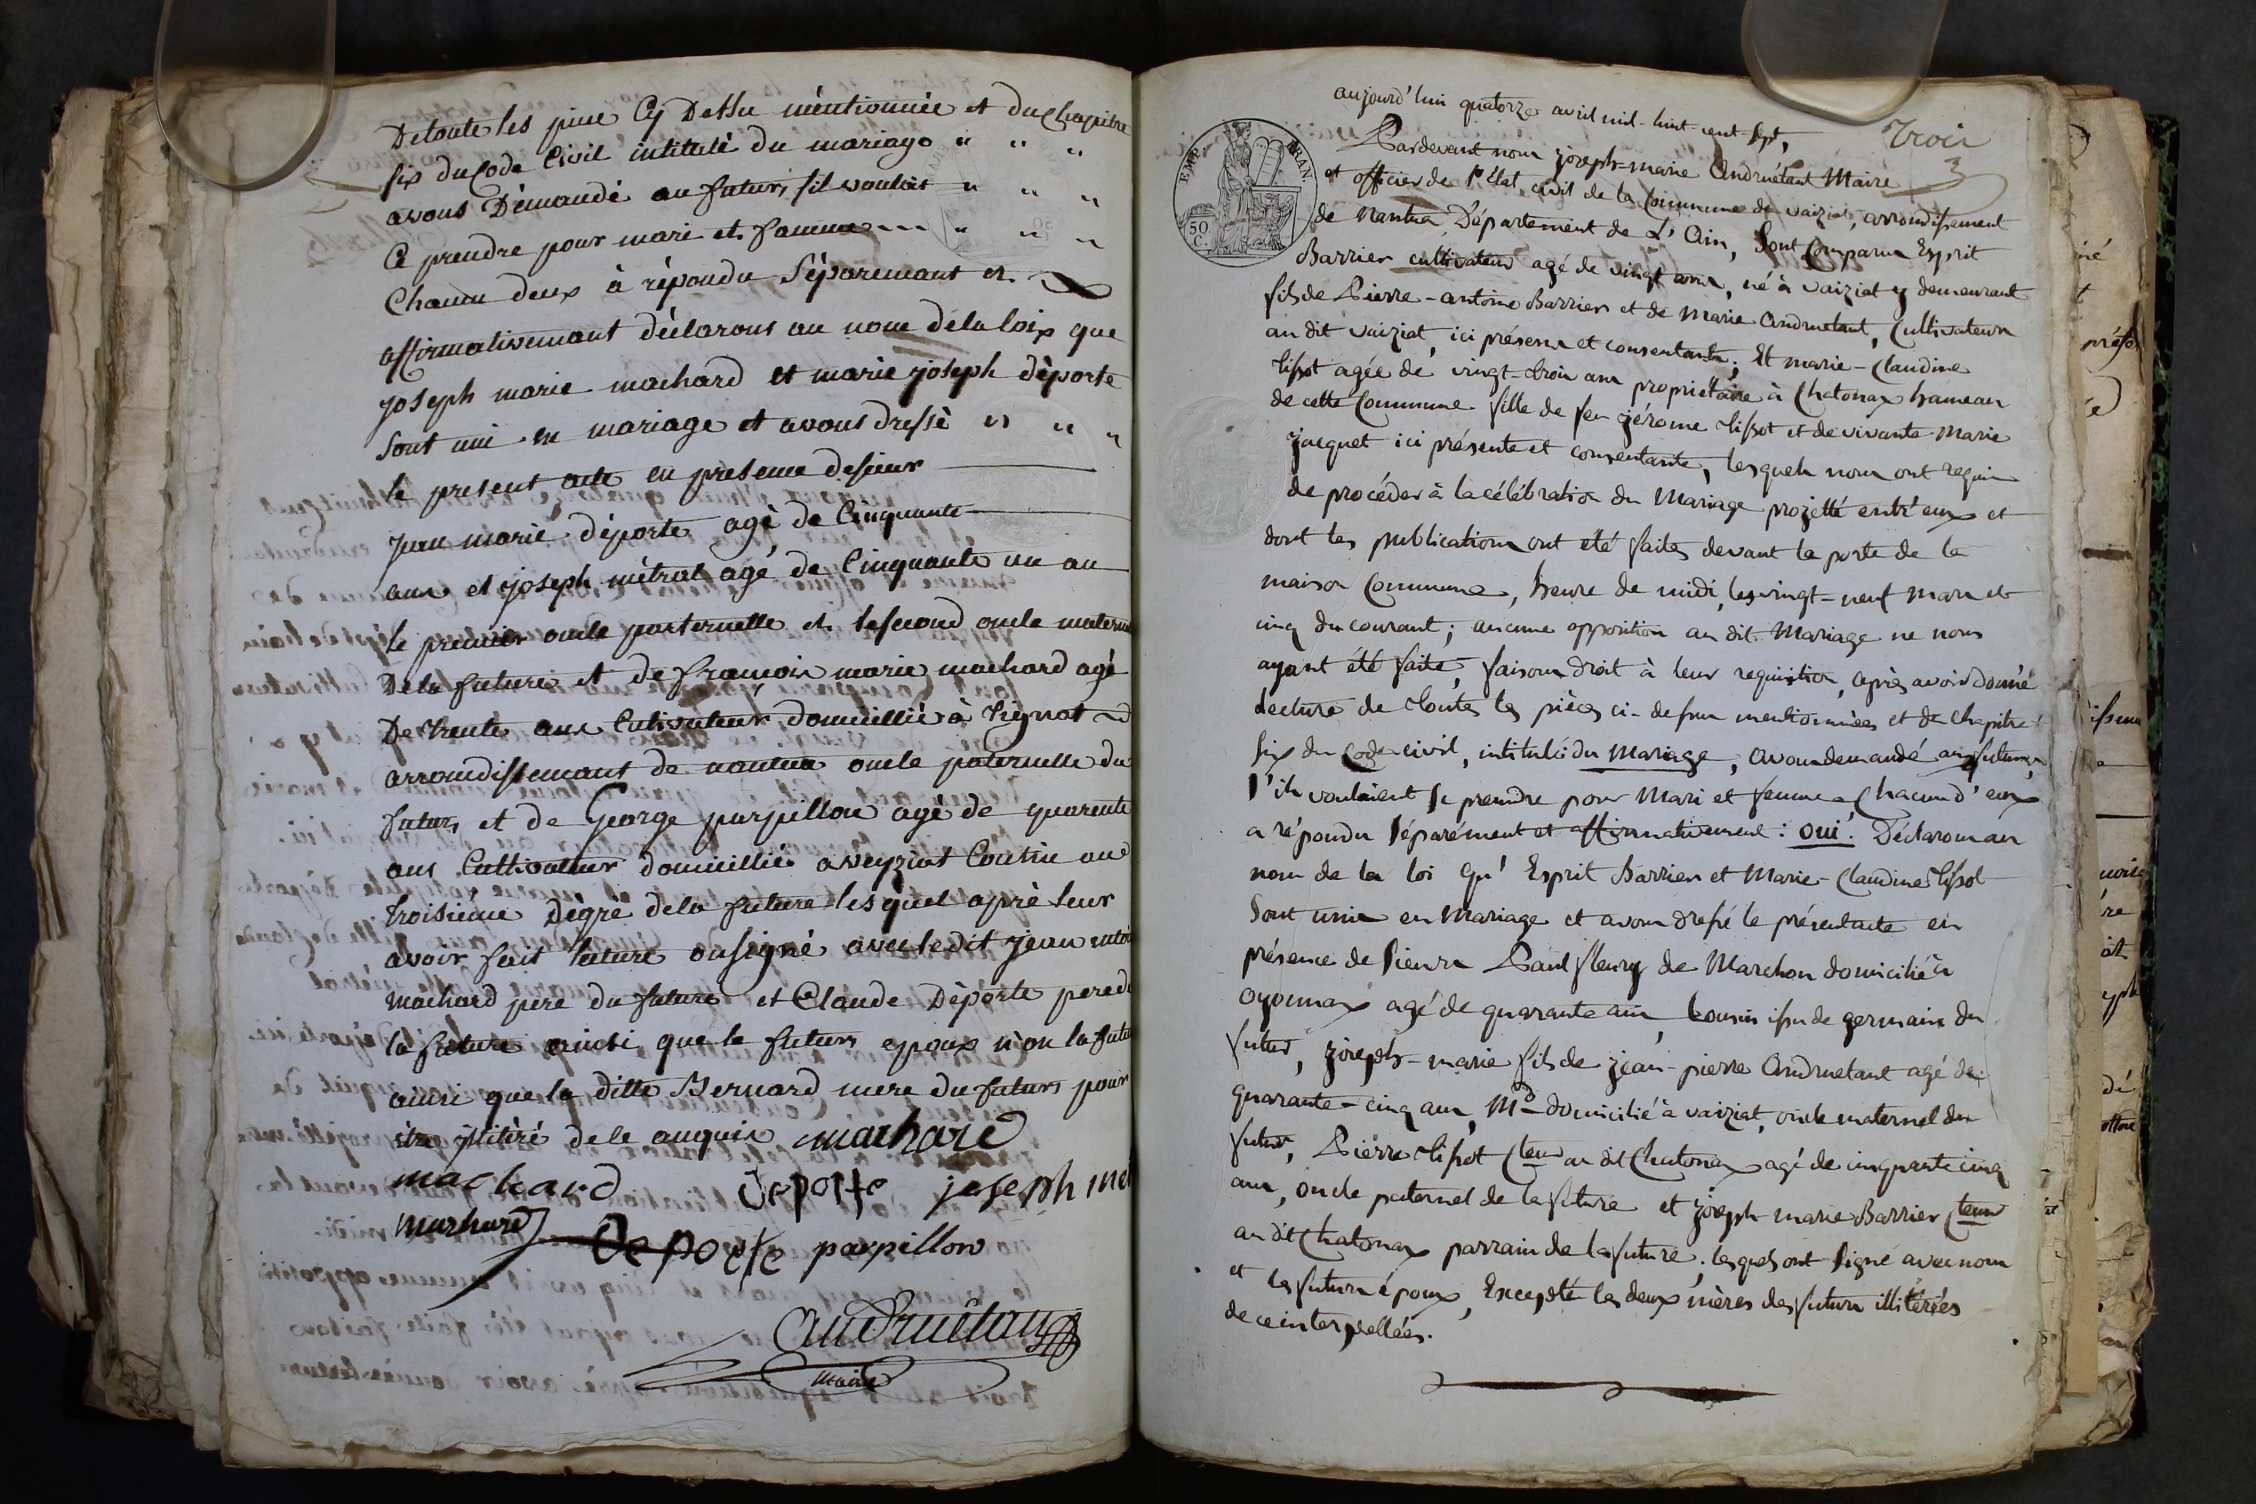 De toute les piece Cy Dessu mèntionnèe et du Chapitre
six du Code Civil intitulé du mariage " " "
avons Dèmandé au futurs s'il voulais " " "
Ce prendre pour mari et famme " " "
Chacun deux à rèpondu Sèparemant et
affirmativemant dèclarons au nom de la loix que
joseph marie machard et marie joseph dèporte
sont uni en mariage et avons dressè " " "
le present acte en presence de sieur
jean marie dèporte agè de Cinquante
ans et joseph mètral agé de Cinquante un an
le premier oncle parternelle et le second oncle matern
De la future et de francois marie machard agè
De trente ans Cultivateur domicilliè à
arrondissemant de nantua oncle paternelle du
futurs et de George parpillon agè de quarente
ans Cultivateur domicilliè a veyziat Coutin au
troisieme Dègrè de la future lesquel aprè leur
avoir fait lature on signé avec le dit jean
machard pere du future et Claude Dèporte pere de
la future ainsi que le futurs epoux n'on la futu
ainsi que la ditte Bernard mere du futurs pour
être de le anquis machard
machard deporte joseph met
machard deporte parpillon
andruétan
maire
aujourd'hui quatorze avril mil-huit-cent-sept,
Troi
3
EMP. FRAN.
50 C.
Pardevant nous joseph-marie Andruétant Maire
et officier de l'état civil de la Commune de vaiziat, arrondissement
de Nantua, Département de L'Ain, Sont Comparus Esprit
Barrier cultivateur agé de vingt ans, né à vaiziat y demeurant
fils de Pierre-antoine Barrier et de Marie Andruetant, Cultivateurs
au dit vaiziat, ici présens et consentants; Et marie-Claudine
tissot agée de vingt-trois ans propriétaire à Chatonax hameau
de cette Commune fille de feu jérome tissot et de vivante Marie
jacquet ici présente et consentante, lesquels nous ont requis
de procéder à la célébration du Mariage projetté entr'eux et
dont les publications ont été faites devant la porte de la
maison Commune, heure de midi, les vingt-neuf mars et
cinq du courant; aucune opposition au dit Mariage ne nous
ayant été faite, faisons droit à leur requisition, après avoir donné
lecture de toutes les pièces ci-dessus mentionnées et du chapitre
six du Code civil, intitulé du Mariage, avons demandé aux futurs
s'ils voulaient se prendre pour Mari et femme Chacun d'eux
a répondu séparément et affirmativement: oui. Déclarons au
nom de la loi qu'Esprit Barrier et Marie-Claudine tissot
Sont unis en Mariage et avons dressé le présent acte en
présence de Pierre Paul fleury de Marchon domicilié à
oyonnax agé de quarante ans, Cousin issu de germain du
futur, joseph-marie fils de jean-pierre Andruetant agé de
quarante-cinq ans, Md domicilié à vaiziat, oncle maternel du
futur, Pierre tissot Cteur au dit Chatonax agé de cinquante cinq
ans, oncle paternel de la future et joseph-marie Barrier Cteur
au dit Chatonax parrain de la future, lesquels ont signé avec nous
et les futurs époux, Excepté les deux mères des futurs illitérées
de ce interpellées.